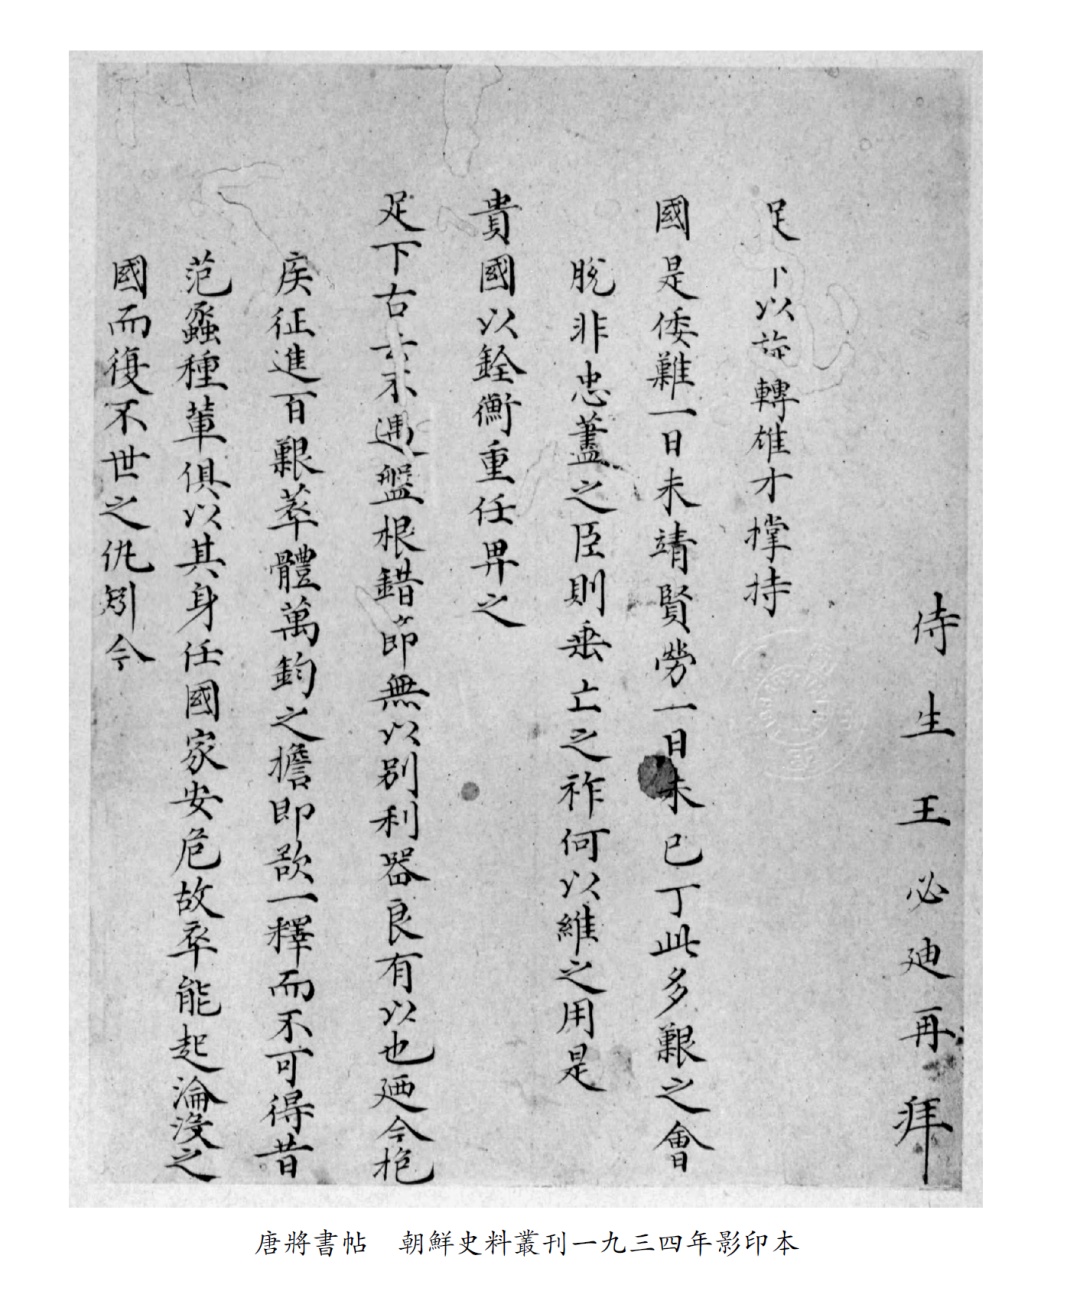 侍生王必迪再拜
足下以旋轉雄才撑持
國是倭難一日未靖賢勞一日未已丁此多艱之會
脫非忠藎之臣則垂亡之祚何以維之用是
貴國以銓衡重任畀之
足下古云不遇盤根錯節無以別利器良有以也廼今抱
疾征進百艱萃體萬鈞之擔即欲一釋而不可得昔
范蠡種輩俱以其身任國家安危故卒能起淪没之
國而復不世之仇矧今
唐將書帖　朝鮮史料叢刊一九三四年影印本